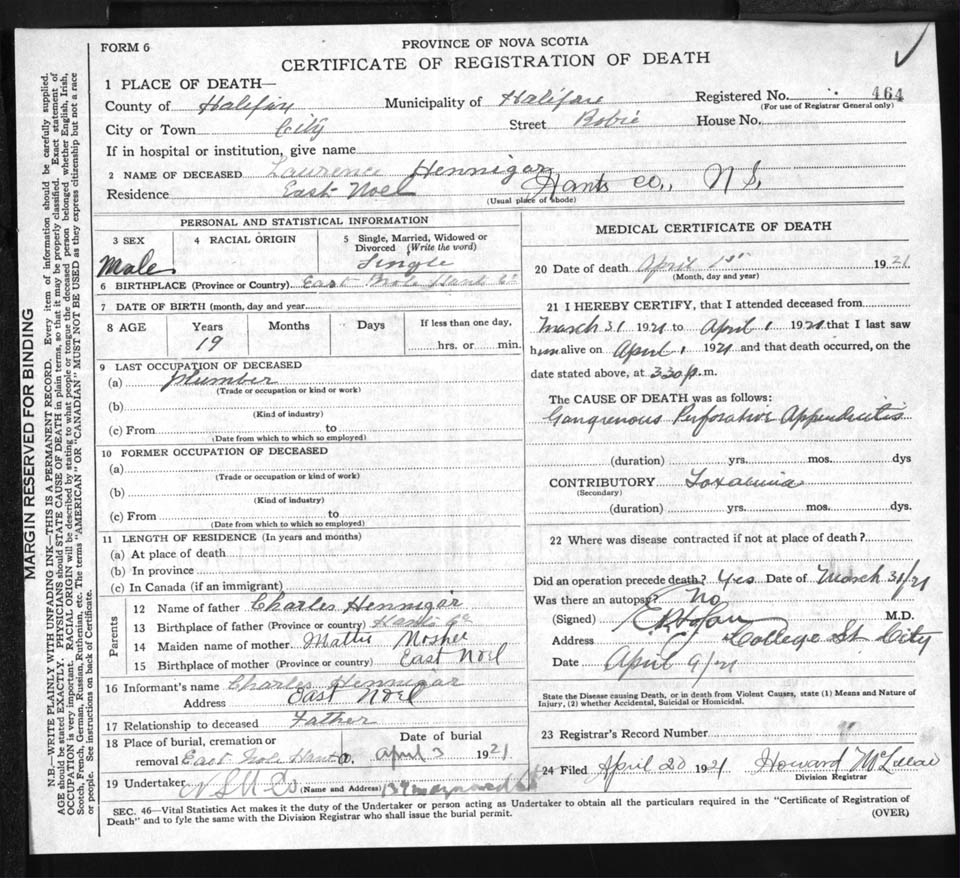 FORM 6
PROVINCE OF NOVA SCOTIA
CERTIFICATE OF REGISTRATION OF DEATH
1 PLACE OF DEATH—
County of Halifax Municipality of Halifax Registered No. 464
(For use of Registrar General only)
City or Town City Street Robie House No.
If in hospital or institution, give name
2 NAME OF DECEASED Laurence Hennigar
Residence East Noel Hants Co., N.S.
(Usual place of abode)
PERSONAL AND STATISTICAL INFORMATION
3 SEX
Male
4 RACIAL ORIGIN
5 Single, Married, Widowed or
Divorced (Write the word)
Single
6 BIRTHPLACE (Province or Country) East Noel Hants Co
7 DATE OF BIRTH (month, day and year)
8 AGE Years Months Days If less than one day,
19 hrs. or min.
9 LAST OCCUPATION OF DECEASED
(a) Plumber
(Trade or occupation or kind or work)
(b)
(Kind of industry)
(c) From to
(Date from which to which so employed)
10 FORMER OCCUPATION OF DECEASED
(a)
(Trade or occupation or kind of work)
(b)
(Kind of industry)
(c) From to
(Date from which to which so employed)
11 LENGTH OF RESIDENCE (In years and months)
(a) At place of death
(b) In province
(c) In Canada (if an immigrant)
Parents
12 Name of father Charles Hennigar
13 Birthplace of father (Province or country) Hants Co
14 Maiden name of mother Mattie Mosher
15 Birthplace of mother (Province or country) East Noel
16 Informant's name Charles Hennigar
Address East Noel
17 Relationship to deceased Father
18 Place of burial, cremation or Date of burial
removal East Noel Hants Co. April 3 1921
19 Undertaker N S U Co (Name and Address)
MEDICAL CERTIFICATE OF DEATH
20 Date of death April 1st 1921
(Month, day and year)
21 I HEREBY CERTIFY, that I attended deceased from
March 31 1921 to April 1 1921 that I last saw
him alive on April 1 1921 and that death occurred, on the
date stated above, at 3.30 p.m.
The CAUSE OF DEATH was as follows:
Gangrenous Perforative Appendicitis
(duration) yrs. mos. dys
CONTRIBUTORY Toxaemia
(Secondary)
(duration) yrs. mos. dys.
22 Where was disease contracted if not at place of death?
Did an operation precede death? Yes Date of March 31/21
Was there an autopsy? No
(Signed) M.D.
Address College St City
Date April 9/21
State the Disease causing Death, or in death from Violent Causes, state (1) Means and Nature of
Injury, (2) whether Accidental, Suicidal or Homicidal.
23 Registrar's Record Number
24 Filed April 20 1921 Howard
Division Registrar
SEC. 46—Vital Statistics Act makes it the duty of the Undertaker or person acting as Undertaker to obtain all the particulars required in the "Certificate of Registration of
Death" and to fyle the same with the Division Registrar who shall issue the burial permit. (OVER)
MARGIN RESERVED FOR BINDING
N.B.—WRITE PLAINLY WITH UNFADING INK—THIS IS A PERMANENT RECORD. Every item of information should be carefully supplied.
AGE should be stated EXACTLY. PHYSICIANS should STATE CAUSE OF DEATH in plain terms, so that it may be properly classified. Exact statement of
OCCUPATION is very important. RACIAL ORIGIN will be described by stating to what people or tongue the deceased person belonged whether English, Irish,
Scotch, French, German, Russian, Ruthenian, etc. The terms "AMERICAN" OR "CANADIAN" MUST NOT BE USED as they express citizenship but not a race
or people. See instructions on back of Certificate.